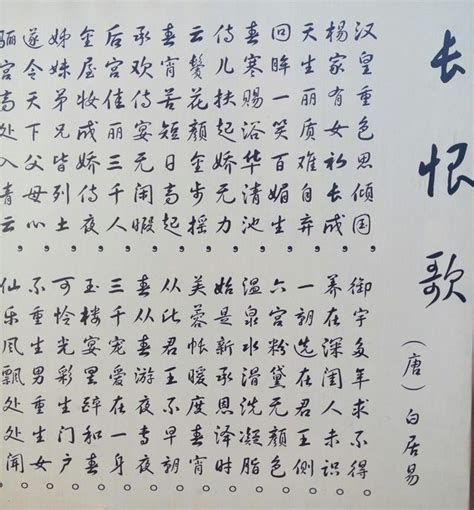 长恨歌
(唐) 白居易
汉皇重色思倾国，御宇多年求不得。
杨家有女初长成，养在深闺人未识。
天生丽质难自弃，一朝选在君王侧。
回眸一笑百媚生，六宫粉黛无颜色。
春寒赐浴华清池，温泉水滑洗凝脂。
侍儿扶起娇无力，始是新承恩泽时。
云鬓花颜金步摇，芙蓉帐暖度春宵。
春宵苦短日高起，从此君王不早朝。
承欢侍宴无闲暇，春从春游夜专夜。
后宫佳丽三千人，三千宠爱在一身。
金屋妆成娇侍夜，玉楼宴罢醉和春。
姊妹弟兄皆列土，可怜光彩生门户。
遂令天下父母心，不重生男重生女。
骊宫高处入青云，仙乐风飘处处闻。